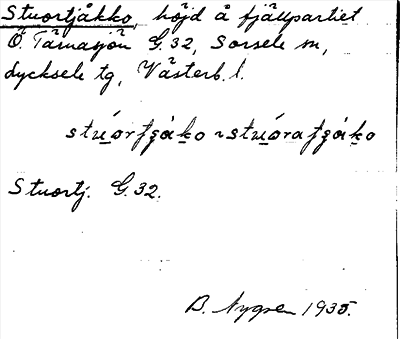 Stuortjåkko, höjd å fjällpartiet
Ö. Tärnasjön G.32, Sorsele sn,
Lycksele tg, Västerb. l.
Stuortj. G.32.
B. Nygren 1935.